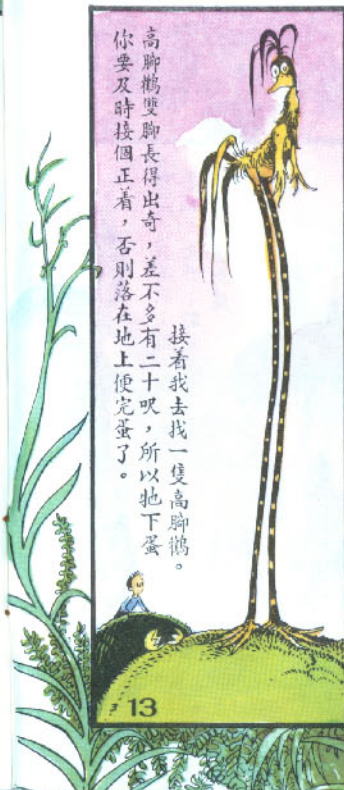 接着我去找一隻高脚鶴。
高脚鶴雙脚長得出奇，差不多有二十呎，所以牠下蛋
你要及時接個正着，否則落在地上便完蛋了。
13